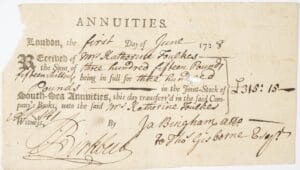 ANNUITIES.
London, the first Day of June 1728
Received of Mrs Katherine Foulkes
the Sum of three hundred fifteen Pounds
fifteen shillings being in full for three hundred
Pounds in the Joint-Stock of £315:15
South-Sea Annuities, this day transferr'd in the said Com-
pany's Books, unto the said Mrs Katherine Foulkes
Witness By Ja Bingham Atto
to Thos Gisborne Esqr